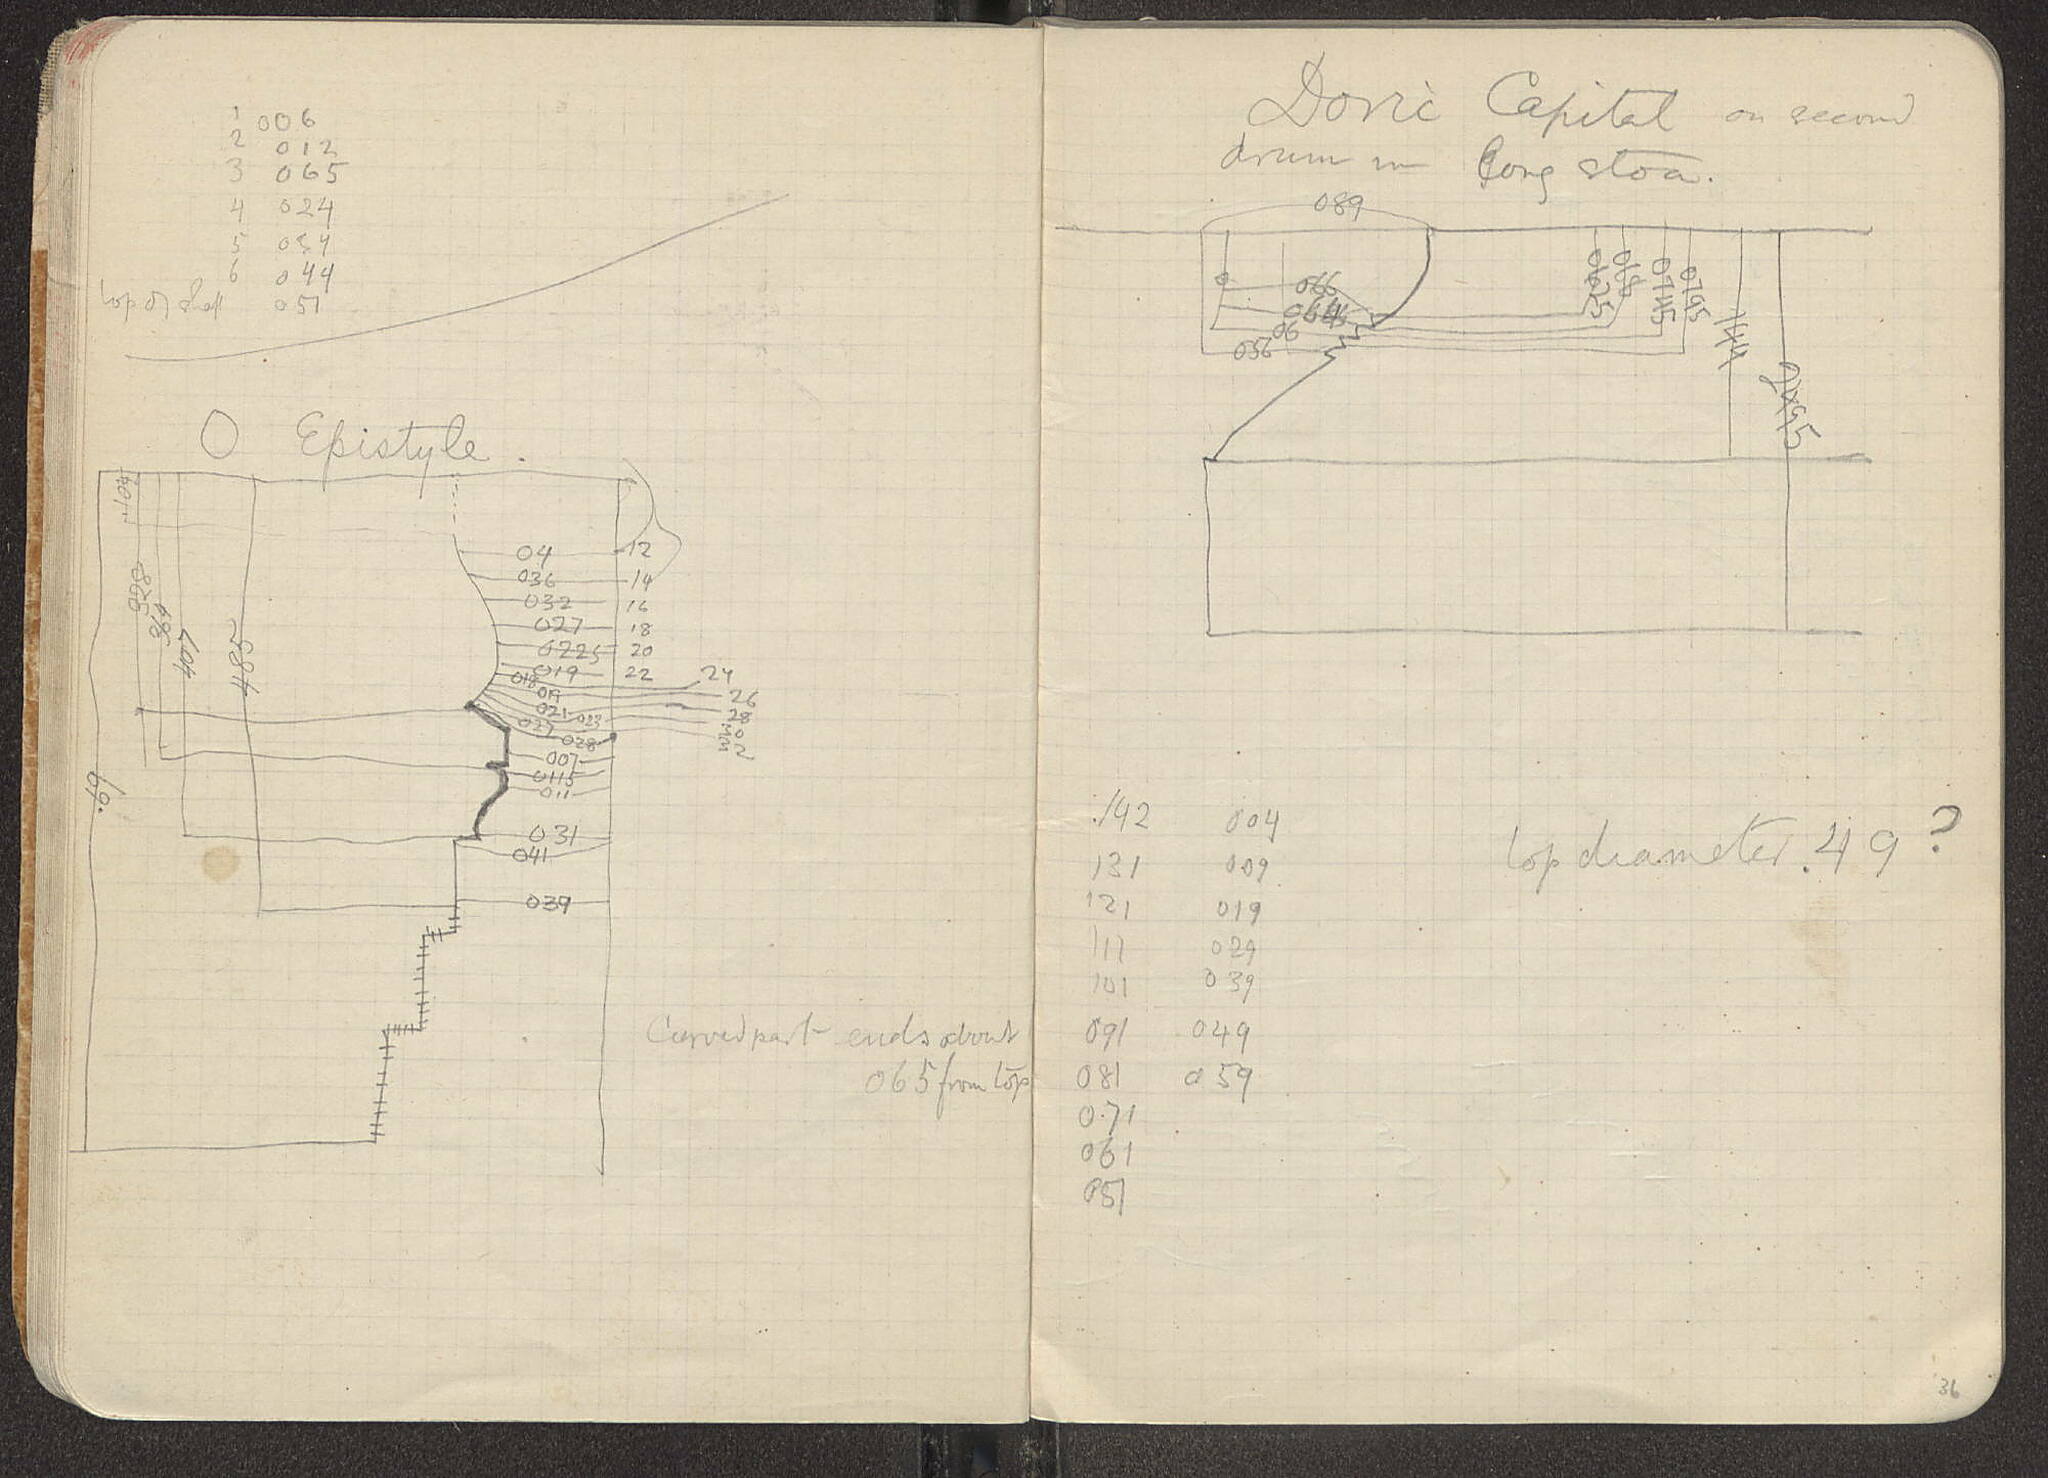 1 006
2 012
3 065
4 024
5 034
6 044
top of shaft 051
O Epistyle.
04 12
036 14
032 16
027 18
0225 20
019 22
018 24
019 26
021 28
023
027
028
007
0115
011
031
041
039
.69
Curved part ends about
065 from top
Doric Capital on second
drum in Long stoa.
089
066
06
056
0625
068
0745
0795
144
.142 004
131 009
121 019
111 029
101 039
091 049
081 059
0.71
061
051
top diameter .49?
36